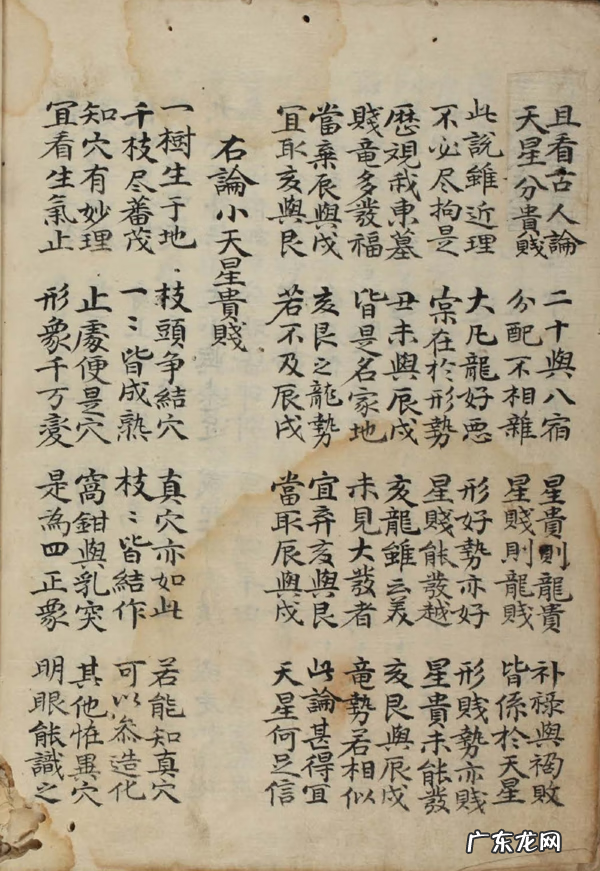 且看古人論
天星分貴賤
二十與八宿
分配不相雜
星貴則龍貴
星賤則龍賤
补祿與禍敗
皆係於天星
此說雖近理
不必尽拘是
大凡龍好悪
宲在於形勢
形好勢亦好
星賤能發越
形賤勢亦賤
星貴未能發
歷視我東墓
賤竜多發福
丑未與辰戌
皆是名家地
亥龍雖云美
未見大發者
亥艮與辰戌
竜勢若相似
當棄辰與戌
宜取亥與艮
亥艮之龍勢
若不及辰戌
宜弃亥與艮
當取辰與戌
此論甚得宜
天星何足信
右論小天星貴賤
一樹生于地
千枝尽蕃茂
枝頭争結穴
一〻皆成熟
真穴亦如此
枝〻皆結作
若能知真穴
可以叅造化
知穴有妙理
宜看生氣止
止處便是穴
形象千万変
窩鉗與乳突
是為四正象
其他恠異穴
明眼能識之
广东龙网